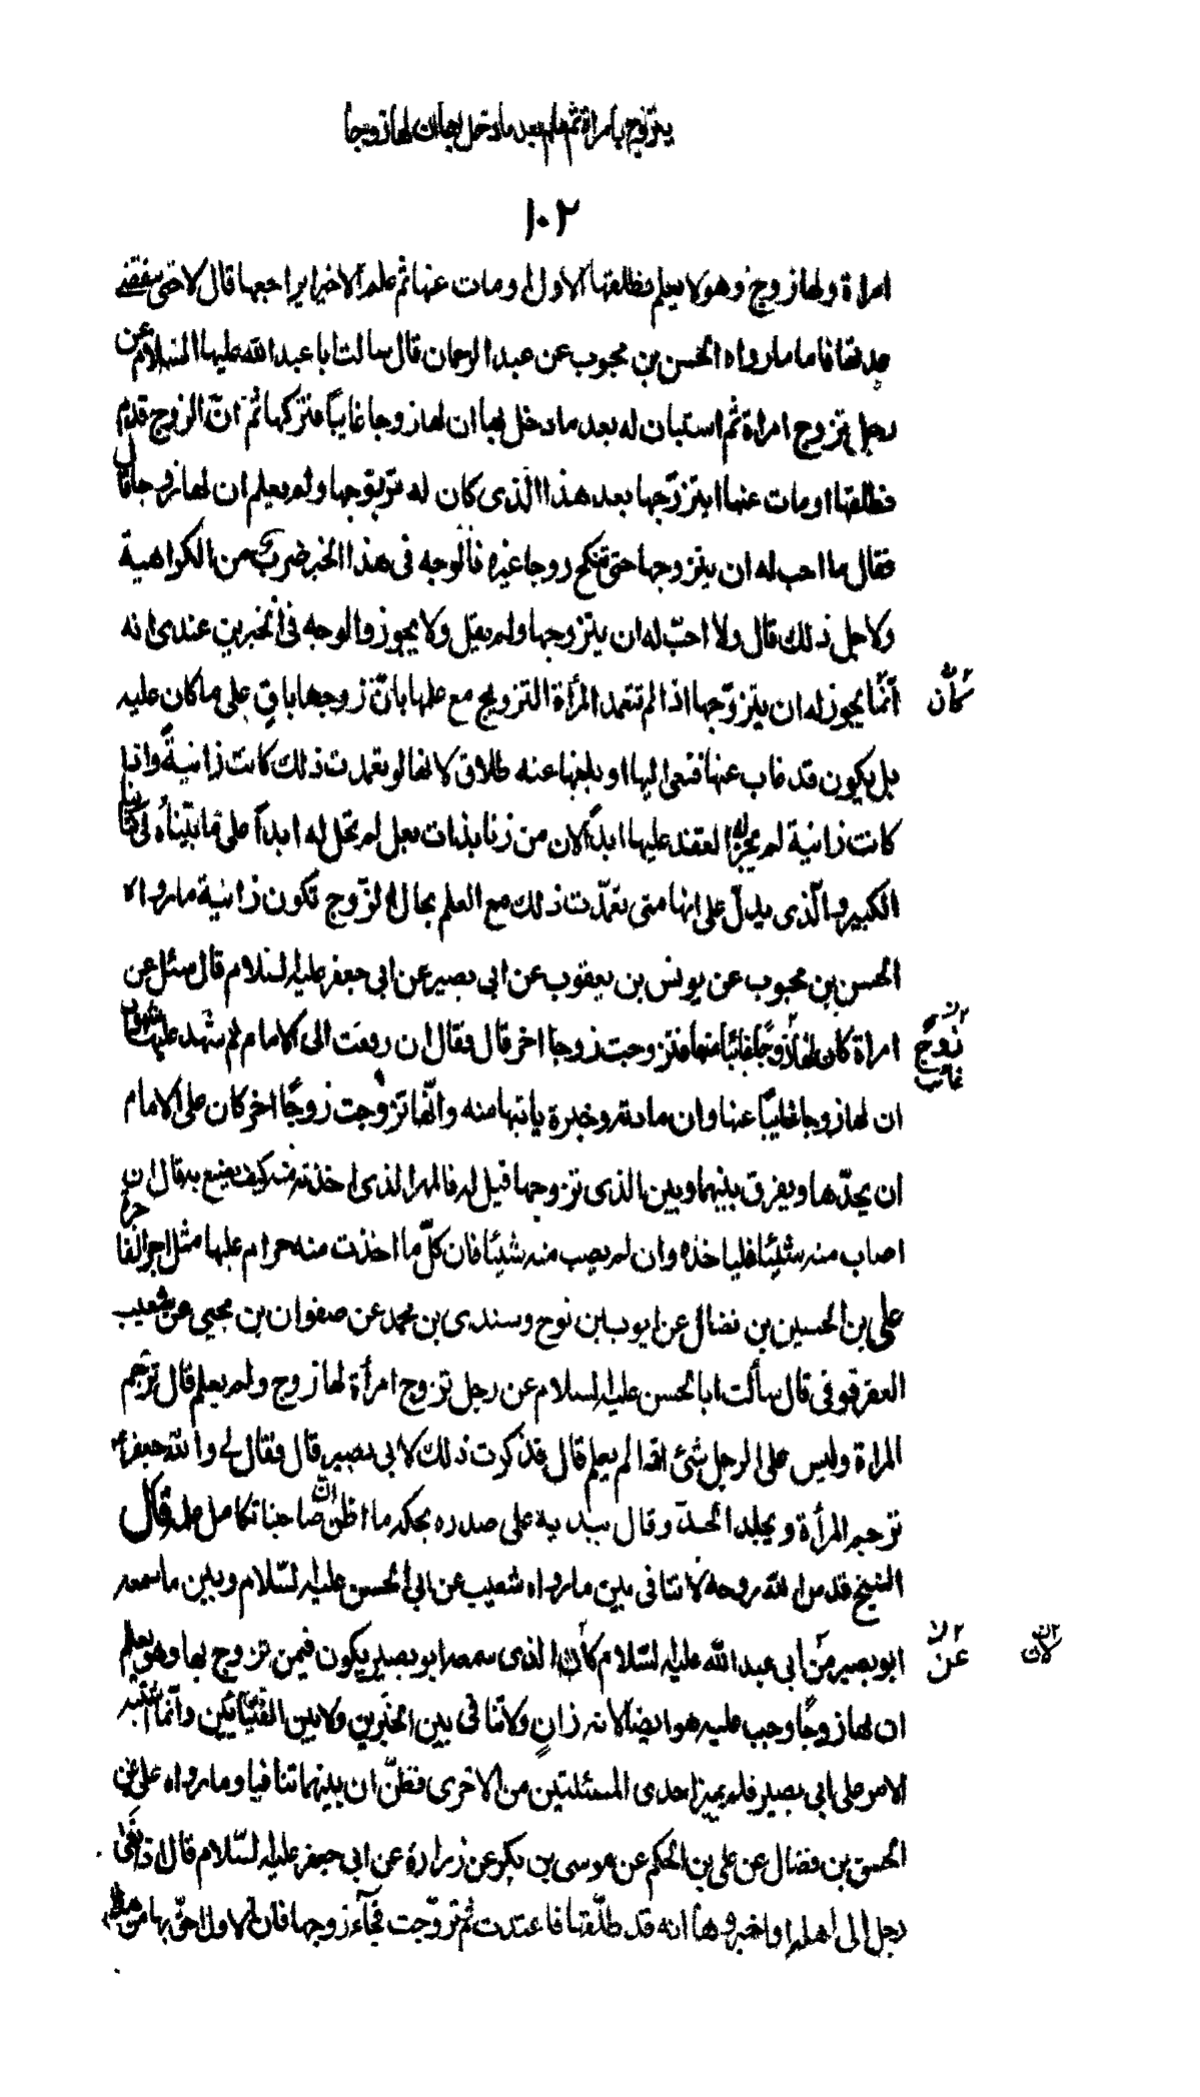 يتزوج بامراة ثم علم بعد ما دخل بها ان لها زوجا
١٠٢
امراة ولها زوج وهو لا يعلم فطلقها الاول او مات عنها ثم علم الاخير ايراجعها قال لا حتى تنقضي
عدتها فاما ما رواه الحسن بن محبوب عن عبد الرحمان قال سالت ابا عبد الله عليه السلام عن
رجل يتزوج امراة ثم استبان له بعد ما دخل بها ان لها زوجا غايبا فتركها ثم ان الزوج قدم
فطلقها او مات عنها ايتزوجها بعد هذا الذى كان له تزوجها ولم يعلم ان لها زوجا قال
فقال ما احب له ان يتزوجها حتى تنكح زوجا غيره فالوجه فى هذا الخبر ضرب من الكراهية
ولاجل ذلك قال ولا احب له ان يتزوجها ولم يقل ولا يجوز والوجه فى الخبرين عندى انه
انما يجوز له ان يتزوجها اذا لم تتعمد المرأة التزويج مع علمها بان زوجها باق على ما كان عليه
كأن
بل يكون قد غاب عنها فنعى اليها او بلغها عنه طلاق لانها لو تعمدت ذلك كانت زانية واذا
كانت زانية لم يجز له العقد عليها ابدا لان من زنا بذات بعل لم تحل له ابدا على ما بيناه فى كتابنا
الكبير والذى يدل على انها متى تعمدت ذلك مع العلم بحال الزوج تكون زانية ما رواه
الحسن بن محبوب عن يونس بن يعقوب عن ابى بصير عن ابى جعفر عليه السلام قال سئل عن
امراة كان لها زوجا غائبا عنها فتزوجت زوجا اخر قال فقال ان رفعت الى الامام ثم شهد عليها شهود
زوج
غائب
ان لها زوجا غايبا عنها وان مادته وخبره ياتيها منه وانها تزوجت زوجا اخر كان على الامام
ان يحدها ويفرق بينهما وبين الذى تزوجها قيل له فالمهر الذى اخذته منه كيف يصنع به قال ان
اصاب منه شيئا فلياخذه وان لم يصب منه شيئا فان كل ما اخذت منه حرام عليها مثل اجر الفاجرة
على بن الحسين بن فضال عن ايوب بن نوح وسندى بن محمد عن صفوان بن يحيى عن شعيب
العقرقوفى قال سألت ابا الحسن عليه السلام عن رجل تزوج امرأة لها زوج ولم يعلم قال ترجم
المراة وليس على الرجل شئ اذا لم يعلم قال فذكرت ذلك لابى بصير قال فقال لى والله جعفر
ترجم المرأة ويجلد الحد وقال بيده على صدره يحكه ما اظن ان صاحبنا تكامل علمه قال
الشيخ قدس الله روحه لا تنافى بين ما رواه شعيب عن ابى الحسن عليه السلام وبين ما سمعه
ابو بصير من أبى عبد الله عليه السلام كأن الذى سمعه ابو بصير يكون فيمن تزوج بها وهو يعلم
عن
لان
ان لها زوجا وجب عليه هو ايضا لانه زان ولا تنافى بين الخبرين ولا بين الفتيائين وانما اشتبه
الامر على ابى بصير فلم يميز احدى المسئلتين من الاخرى فظن ان بينهما تنافيا وما رواه على بن
الحسن بن فضال عن على بن الحكم عن موسى بن بكر عن زرارة عن ابى جعفر عليه السلام قال اذا نعى
رجل الى اهله او اخبروها انه قد طلقها فاعتدت ثم تزوجت فجآء زوجها فان الاول احق بها من هذا